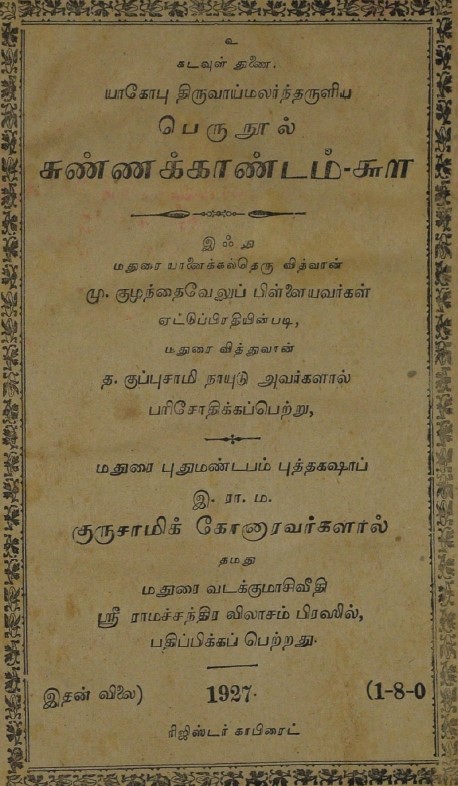 உ
கடவுள் துணை.
யாகோபு திருவாய்மலர்ந்தருளிய
பெருநூல்
சுண்ணக்காண்டம்-சுரள
இஃது
மதுரை யானைக்கல்தெரு வித்வான்
மு. குழந்தைவேலுப் பிள்ளையவர்கள்
ஏட்டுப்பிரதியின்படி,
மதுரை வித்துவான்
த. குப்புசாமி நாயுடு அவர்களால்
பரிசோதிக்கப்பெற்று,
மதுரை புதுமண்டபம் புத்தகஷாப்
இ. ரா. ம.
குருசாமிக் கோனாரவர்களால்
தமது
மதுரை வடக்குமாசிவீதி
ஸ்ரீ ராமச்சந்திர விலாசம் பிரஸில்,
பதிப்பிக்கப் பெற்றது.
இதன் விலை) 1927. (1-8-0
ரிஜிஸ்டர் காபிரைட்